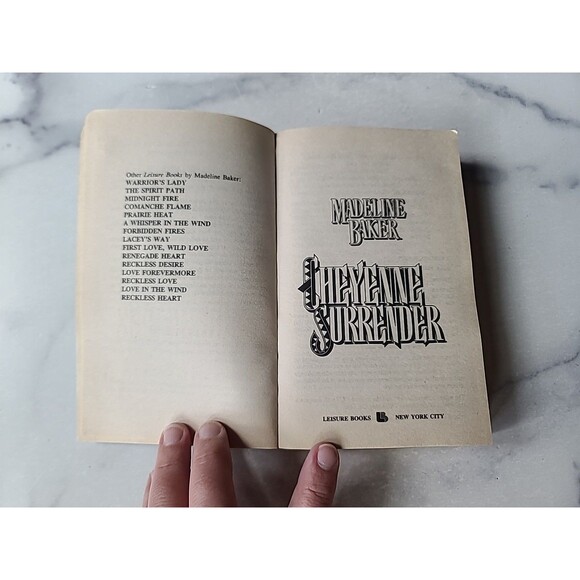 Other Leisure Books by Madeline Baker:
WARRIOR'S LADY
THE SPIRIT PATH
MIDNIGHT FIRE
COMANCHE FLAME
PRAIRIE HEAT
A WHISPER IN THE WIND
FORBIDDEN FIRES
LACEY'S WAY
FIRST LOVE, WILD LOVE
RENEGADE HEART
RECKLESS DESIRE
LOVE FOREVERMORE
RECKLESS LOVE
LOVE IN THE WIND
RECKLESS HEART
MADELINE
BAKER
CHEYENNE
SURRENDER
LEISURE BOOKS LB NEW YORK CITY